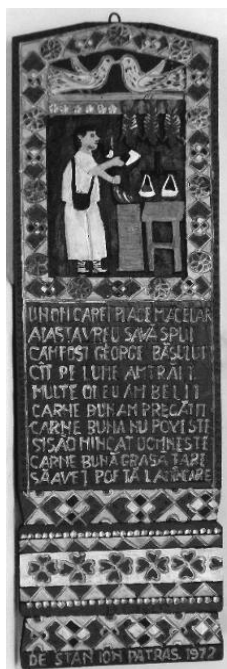 UN OM CAREI PLACE MACELAR
AIASTA VREU SAVĂ SPUI
CAM FOST GEORGE BĂSULUI
CÎT PE LUME AM TRĂIT
MULTE OI EU AM BELIT
CARNE BUNAM PREGĂTIT
CARNE BUNA NU POVESTE
SI SĂO MINCAT DOMNESTE
CARNE BUNĂ GRASĂ TARE
SĂ AVEȚI POFTĂ LA MÎCARE
DE STAN ION PATRAS. 1972